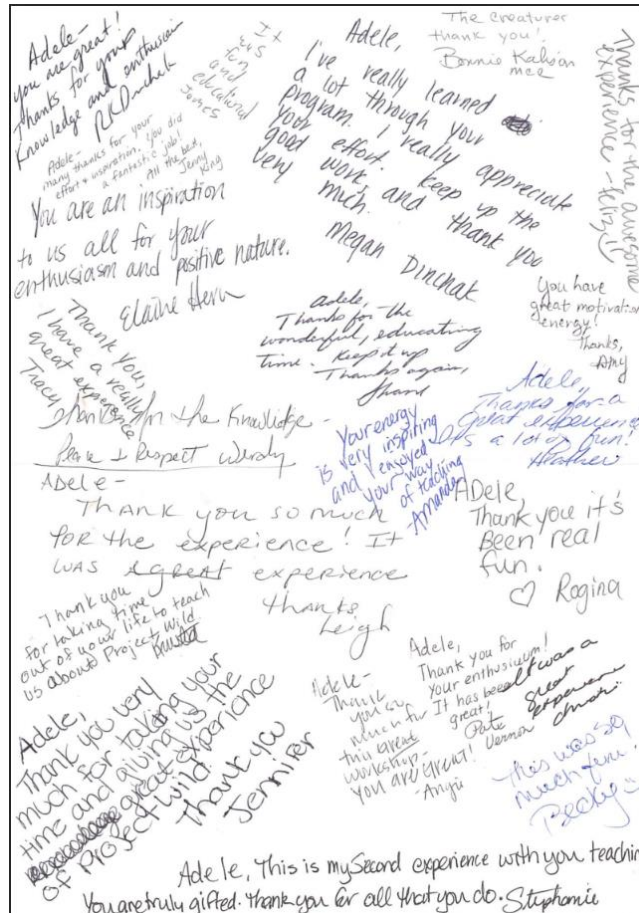 Adele-
you are great!
Thanks for your
Knowledge and enthusiasm
It
was
fun
and
educational
Adele,
I've really learned
a lot through your
program. I really appreciate
your effort. Keep up the
good work, and thank you
very much.
Megan Dinchak
The creatures
thank you!
Bonnie
Thanks for the awesome
experience - Feliz
Adele-
many thanks for your
effort & inspiration. You did
a fantastic job!
All the best,
Jenny
King
You are an inspiration
to us all for your
enthusiasm and positive nature.
Elaine
Thank you,
I have a really
great experience
Tracy
Adele,
Thanks for the
wonderful, educating
time. Keep it up
Thanks again,
You have
great motivation
energy!
Thanks,
Amy
Thanks for the Knowledge -
Peace & Respect Wendy
Your energy
is very inspiring
and I enjoyed
your way
of teaching
Amanda
Adele,
Thanks for a
great experience
a lot of fun!
Heather
ADele-
Thank you so much
for the experience! It
was a great experience
thanks
Leigh
ADele,
Thank you it's
Been real
fun.
♡ Rogina
Thank you
for taking time
out of your life to teach
us about Project Wild
Adele,
Thank you very
much for taking your
time and giving us the
great experience
of Project Wild!
Thank you
Jennifer
Adele-
Thank
you so
much for
this great
workshop-
you are great!
-Angie
Adele,
Thank you for
your enthusium!
It has been
great!
Pate
Vernon
It was a
great
experience
This was so
much fun!
Becky
Adele, This is my Second experience with you teaching
You are truly gifted. Thank you for all that you do. Stephanie